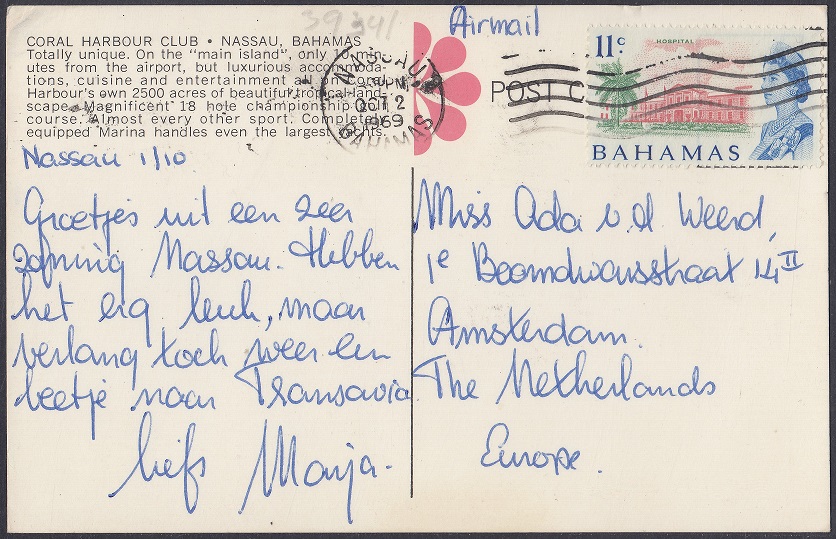 3934/
CORAL HARBOUR CLUB • NASSAU, BAHAMAS
Totally unique. On the "main island", only 10 min-
utes from the airport, but luxurious accommoda-
tions, cuisine and entertainment all on Coral
Harbour's own 2500 acres of beautiful tropical land-
scape. Magnificent 18 hole championship golf
course. Almost every other sport. Completely
equipped Marina handles even the largest yachts.
NASSAU
PM
OCT 2
1969
BAHAMAS
Airmail
POST C
HOSPITAL
11c
BAHAMAS
Nassau 1/10
Groetjes uit een zeer
zonnig Nassau. Hebben
het erg leuk, maar
verlang toch weer een
beetje naar Transavia
liefs Marja.
Miss Ada v.d Weerd,
1e Boomdwarsstraat 14 II
Amsterdam.
The Netherlands
Europe.